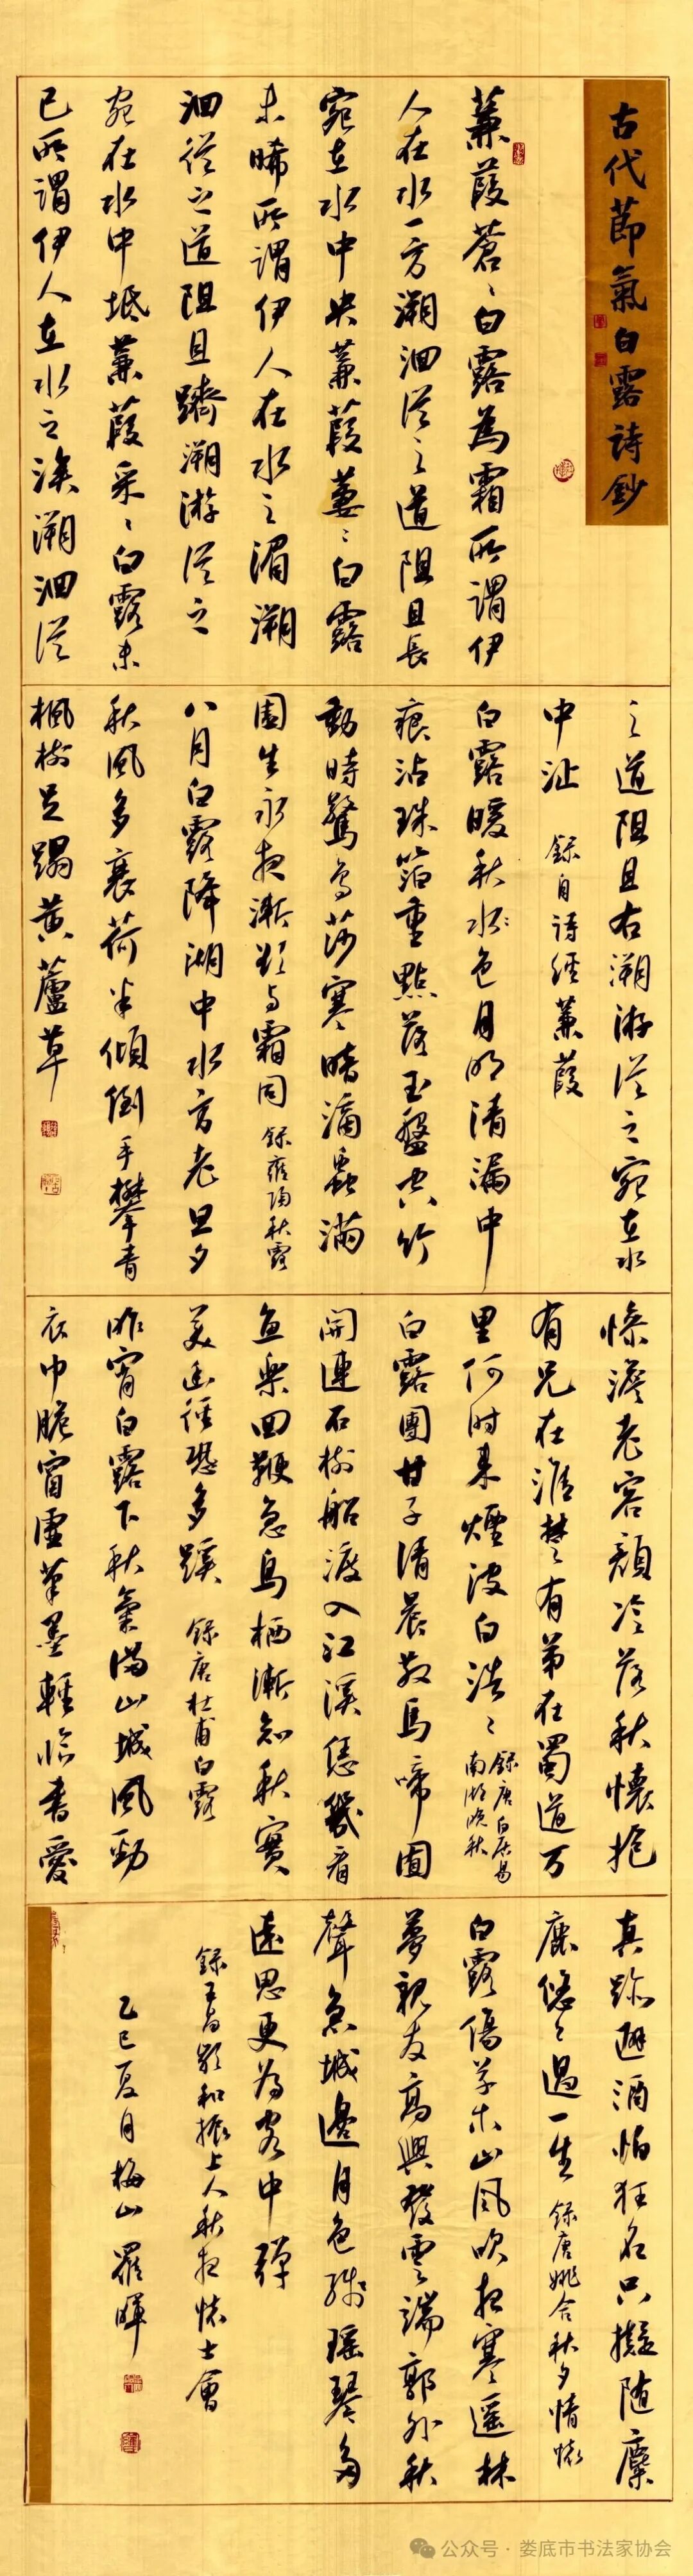 古代節氣白露詩鈔
蒹葭蒼〻白露為霜所謂伊
人在水一方溯洄從之道阻且長
宛在水中央蒹葭萋〻白露
未晞所謂伊人在水之湄溯
洄從之道阻且躋溯游從之
宛在水中坻蒹葭采〻白露未
已所謂伊人在水之涘溯洄從
之道阻且右溯游從之宛在水
中沚 錄自詩經蒹葭
白露暖秋水色月明清漏中
痕沾珠箔重點落玉盤空竹
動時驚鳥莎寒暗滴蟲滿
園生永夜漸欲與霜同 錄雍陶秋露
八月白露降湖中水方老旦夕
秋風多衰荷半傾倒手攀青
楓樹足蹋黃蘆草
慘澹老容顏冷落秋懷抱
有兄在淮楚有弟在蜀道万
里何时来煙波白浩〻 錄唐白居易
南湖晚秋
白露團甘子清晨散馬啼圃
開連石樹船渡入江溪憑几看
魚樂回鞭急鳥栖漸知秋實
美幽徑恐多蹊 錄唐杜甫白露
昨宵白露下秋氣滿山城風勁
衣巾脆窗虛筆墨輕臨書愛
真跡避酒怕狂名只擬随麋
鹿悠〻過一生 錄唐姚合秋夕情懷
白露傷草木山風吹夜寒遥林
夢親友高興發雲端郭外秋
聲急城邊月色殘瑶琴多
遠思更為客中彈
錄王昌齡和振上人秋夜懷士會
乙巳夏月梅山羅暉
公众号·娄底市书法家协会